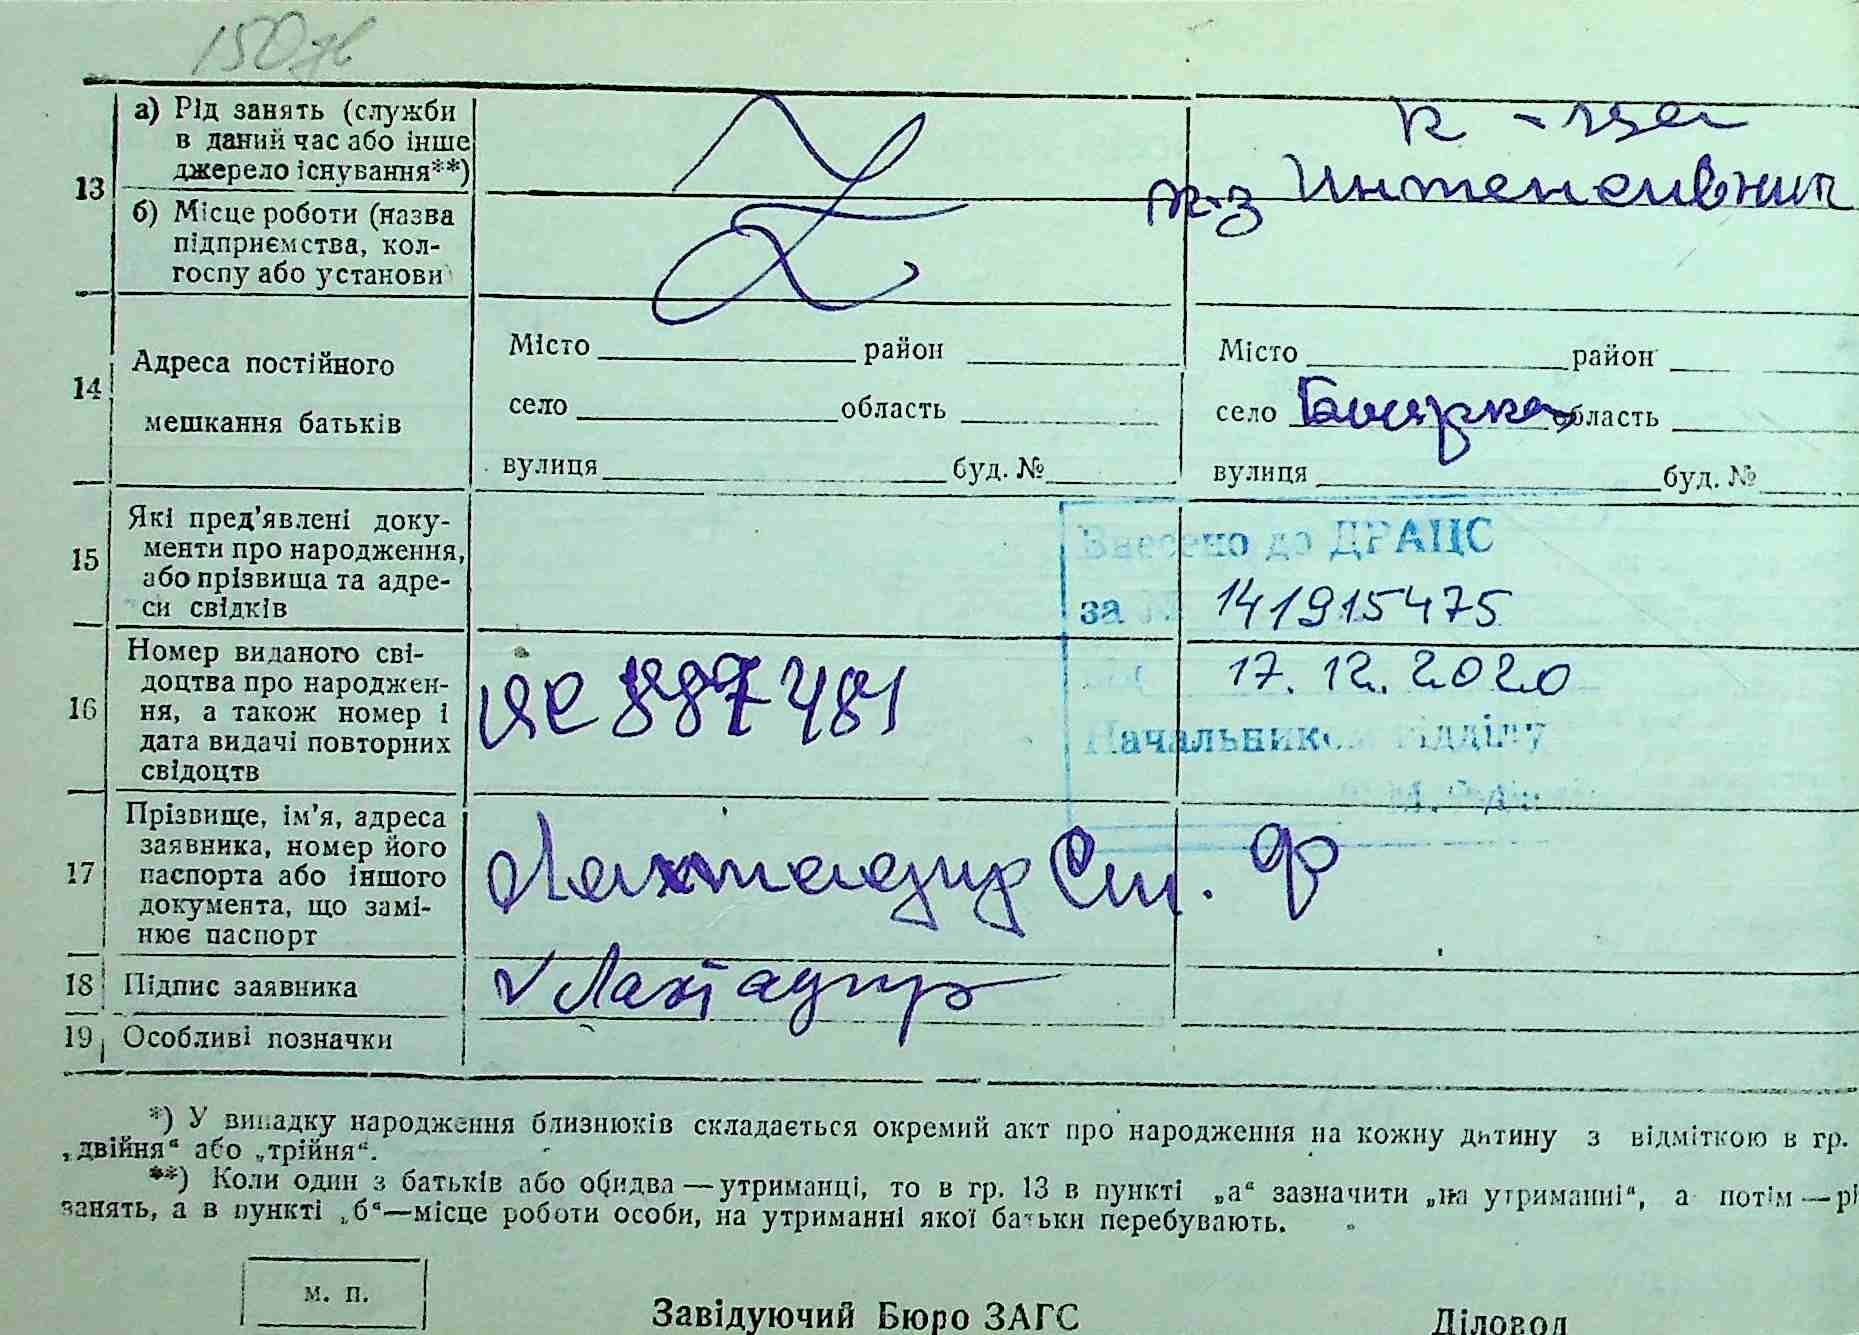 а) Рід занять (служби
в даний час або інше
джерело існування**)
к-ця
13
б) Місце роботи (назва
підприємства, кол-
госпу або установи
к-з Интенсивник
14
Адреса постійного
мешкання батьків
Місто район
село область
вулиця буд. №
Місто район
село Боярка область
вулиця буд. №
15
Які пред'явлені доку-
менти про народження,
або прізвища та адре-
си свідків
Внесено до ДРАЦС
за № 141915475
17.12.2020
Начальником відділу
16
Номер виданого сві-
доцтва про народжен-
ня, а також номер і
дата видачі повторних
свідоцтв
887481
17
Прізвище, ім'я, адреса
заявника, номер його
паспорта або іншого
документа, що замі-
нює паспорт
Лахтадир Ст. Ф
18 Підпис заявника
Лахтадир
19 Особливі позначки
*) У випадку народження близнюків складається окремий акт про народження на кожну дитину з відміткою в гр.
„двійня“ або „трійня“.
**) Коли один з батьків або обидва — утриманці, то в гр. 13 в пункті „а“ зазначити „на утриманні“, а потім — рі
занять, а в пункті „б“—місце роботи особи, на утриманні якої батьки перебувають.
м. п.
Завідуючий Бюро ЗАГС
Діловод